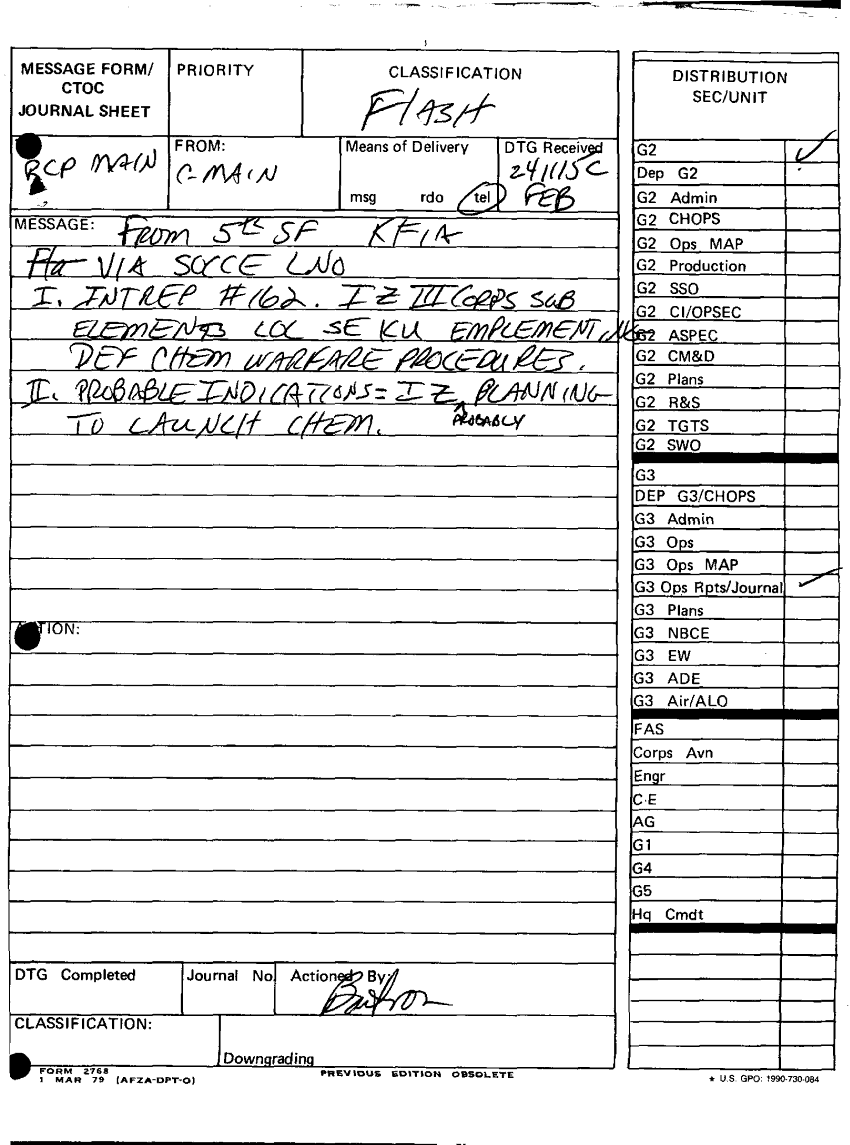 MESSAGE FORM/
CTOC
JOURNAL SHEET
PRIORITY
CLASSIFICATION
FLASH
RCP MAIN
FROM:
C-MAIN
Means of Delivery
msg rdo tel
DTG Received
241115C
FEB
MESSAGE: FROM 5th SF KFIA
VIA SOCCE LNO
I. INTREP #162. IZ III CORPS SUB
ELEMENTS LOC SE KU EMPLEMENTING
DEF CHEM WARFARE PROCEDURES.
II. PROBABLE INDICATIONS = IZ PROBABLY PLANNING
TO LAUNCH CHEM.
ACTION:
DTG Completed
Journal No.
Actioned By:
CLASSIFICATION:
Downgrading
FORM 2768
1 MAR 79 (AFZA-DPT-O)
PREVIOUS EDITION OBSOLETE
DISTRIBUTION
SEC/UNIT
G2
Dep G2
G2 Admin
G2 CHOPS
G2 Ops MAP
G2 Production
G2 SSO
G2 CI/OPSEC
G2 ASPEC
G2 CM&D
G2 Plans
G2 R&S
G2 TGTS
G2 SWO
G3
DEP G3/CHOPS
G3 Admin
G3 Ops
G3 Ops MAP
G3 Ops Rpts/Journal
G3 Plans
G3 NBCE
G3 EW
G3 ADE
G3 Air/ALO
FAS
Corps Avn
Engr
C-E
AG
G1
G4
G5
Hq Cmdt
★ U.S. GPO: 1990-730-084